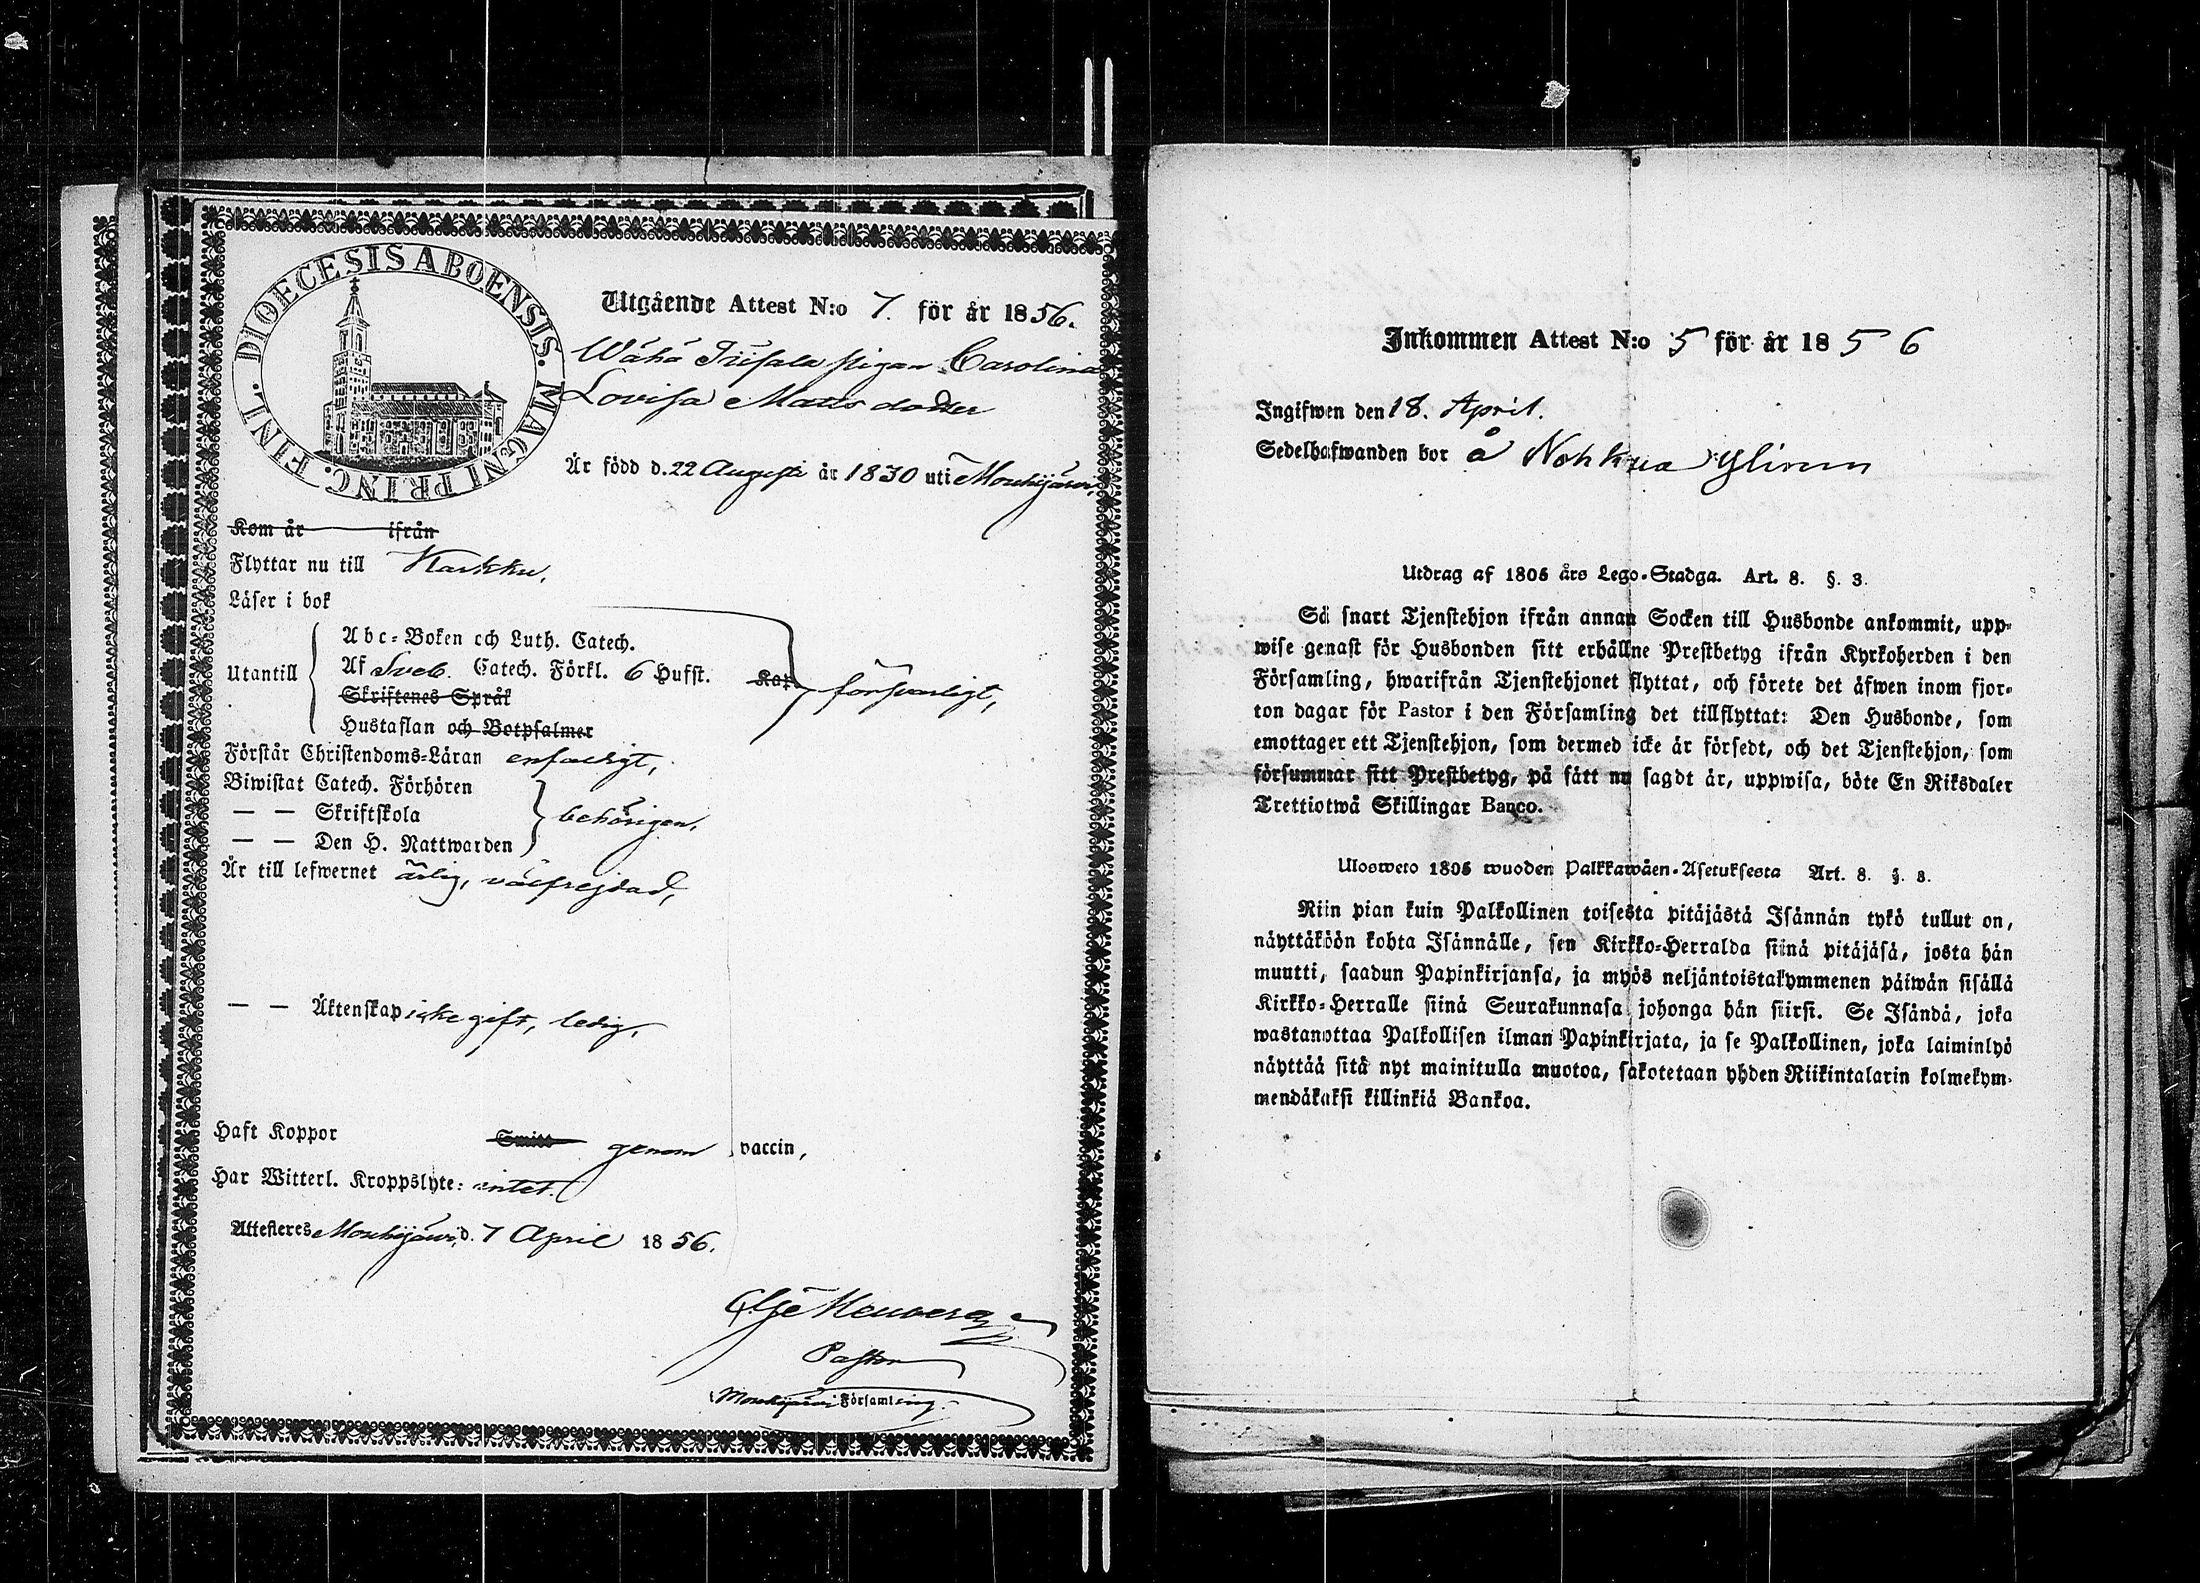 DIOECESIS ABOENSIS. MAGNI PRINC. FINL.
Utgående Attest N:o 7. för år 1856.
Wähä pigan Carolina
Lovisa Mats dotter
Är född d. 22 Augusti år 1830 uti Mouhijärvi,
Kom år ifrån
Flyttar nu till Karkku.
Läser i bok
Utantill
Abc-Boken och Luth. Catech.
Af Sveb. Catech. Förkl. 6 Hufst. Kap
Skriftenes Språk
Hustaflan och Botpsalmer
försvarligt,
Förstår Christendoms-Läran enfaldigt,
Biwistat Catech. Förhören
— — Skriftskola
— — Den H. Nattwarden
behörigen,
Är till lefwernet ärlig, välfrejdad,
— — Äktenskap icke gift, ledig,
Haft Koppor Smitt genom vaccin,
Har Witterl. Kroppslyte: intet.
Attesteres Mouhijärvi, d. 7 April 1856.
Pastor
Mouhijärvi Församling.
Inkommen Attest N:o 5 för år 1856
Ingifwen den 18. April.
Sedelhafwanden bor å Nohkua
Utdrag af 1805 års Lego-Stadga. Art. 8. §. 3.
Så snart Tjenstehjon ifrån annan Socken till Husbonde ankommit, upp-
wise genast för Husbonden sitt erhållne Prestbetyg ifrån Kyrkoherden i den
Församling, hwarifrån Tjenstehjonet flyttat, och förete det äfwen inom fjor-
ton dagar för Pastor i den Församling det tillflyttat: Den Husbonde, som
emottager ett Tjenstehjon, som dermed icke är försedt, och det Tjenstehjon, som
försummar sitt Prestbetyg, på sätt nu sagdt är, uppwisa, böte En Riksdaler
Trettiotwå Skillingar Banco.
Ulosweto 1805 wuoden Palkkawäen-Asetuksesta Art. 8. §. 3.
Niin pian kuin Palkollinen toisesta pitäjästä Isännän tykö tullut on,
näyttäköön kohta Isännälle, sen Kirkko-Herralda siinä pitäjäsä, josta hän
muutti, saadun Papinkirjansa, ja myös neljäntoistakymmenen päiwän sisällä
Kirkko-Herralle siinä Seurakunnasa johonga hän siirsi. Se Isändä, joka
wastanottaa Palkollisen ilman Papinkirjata, ja se Palkollinen, joka laiminlyö
näyttää sitä nyt mainitulla muotoa, sakotetaan yhden Riikintalarin kolmekym-
mendäkaksi killinkiä Bankoa.